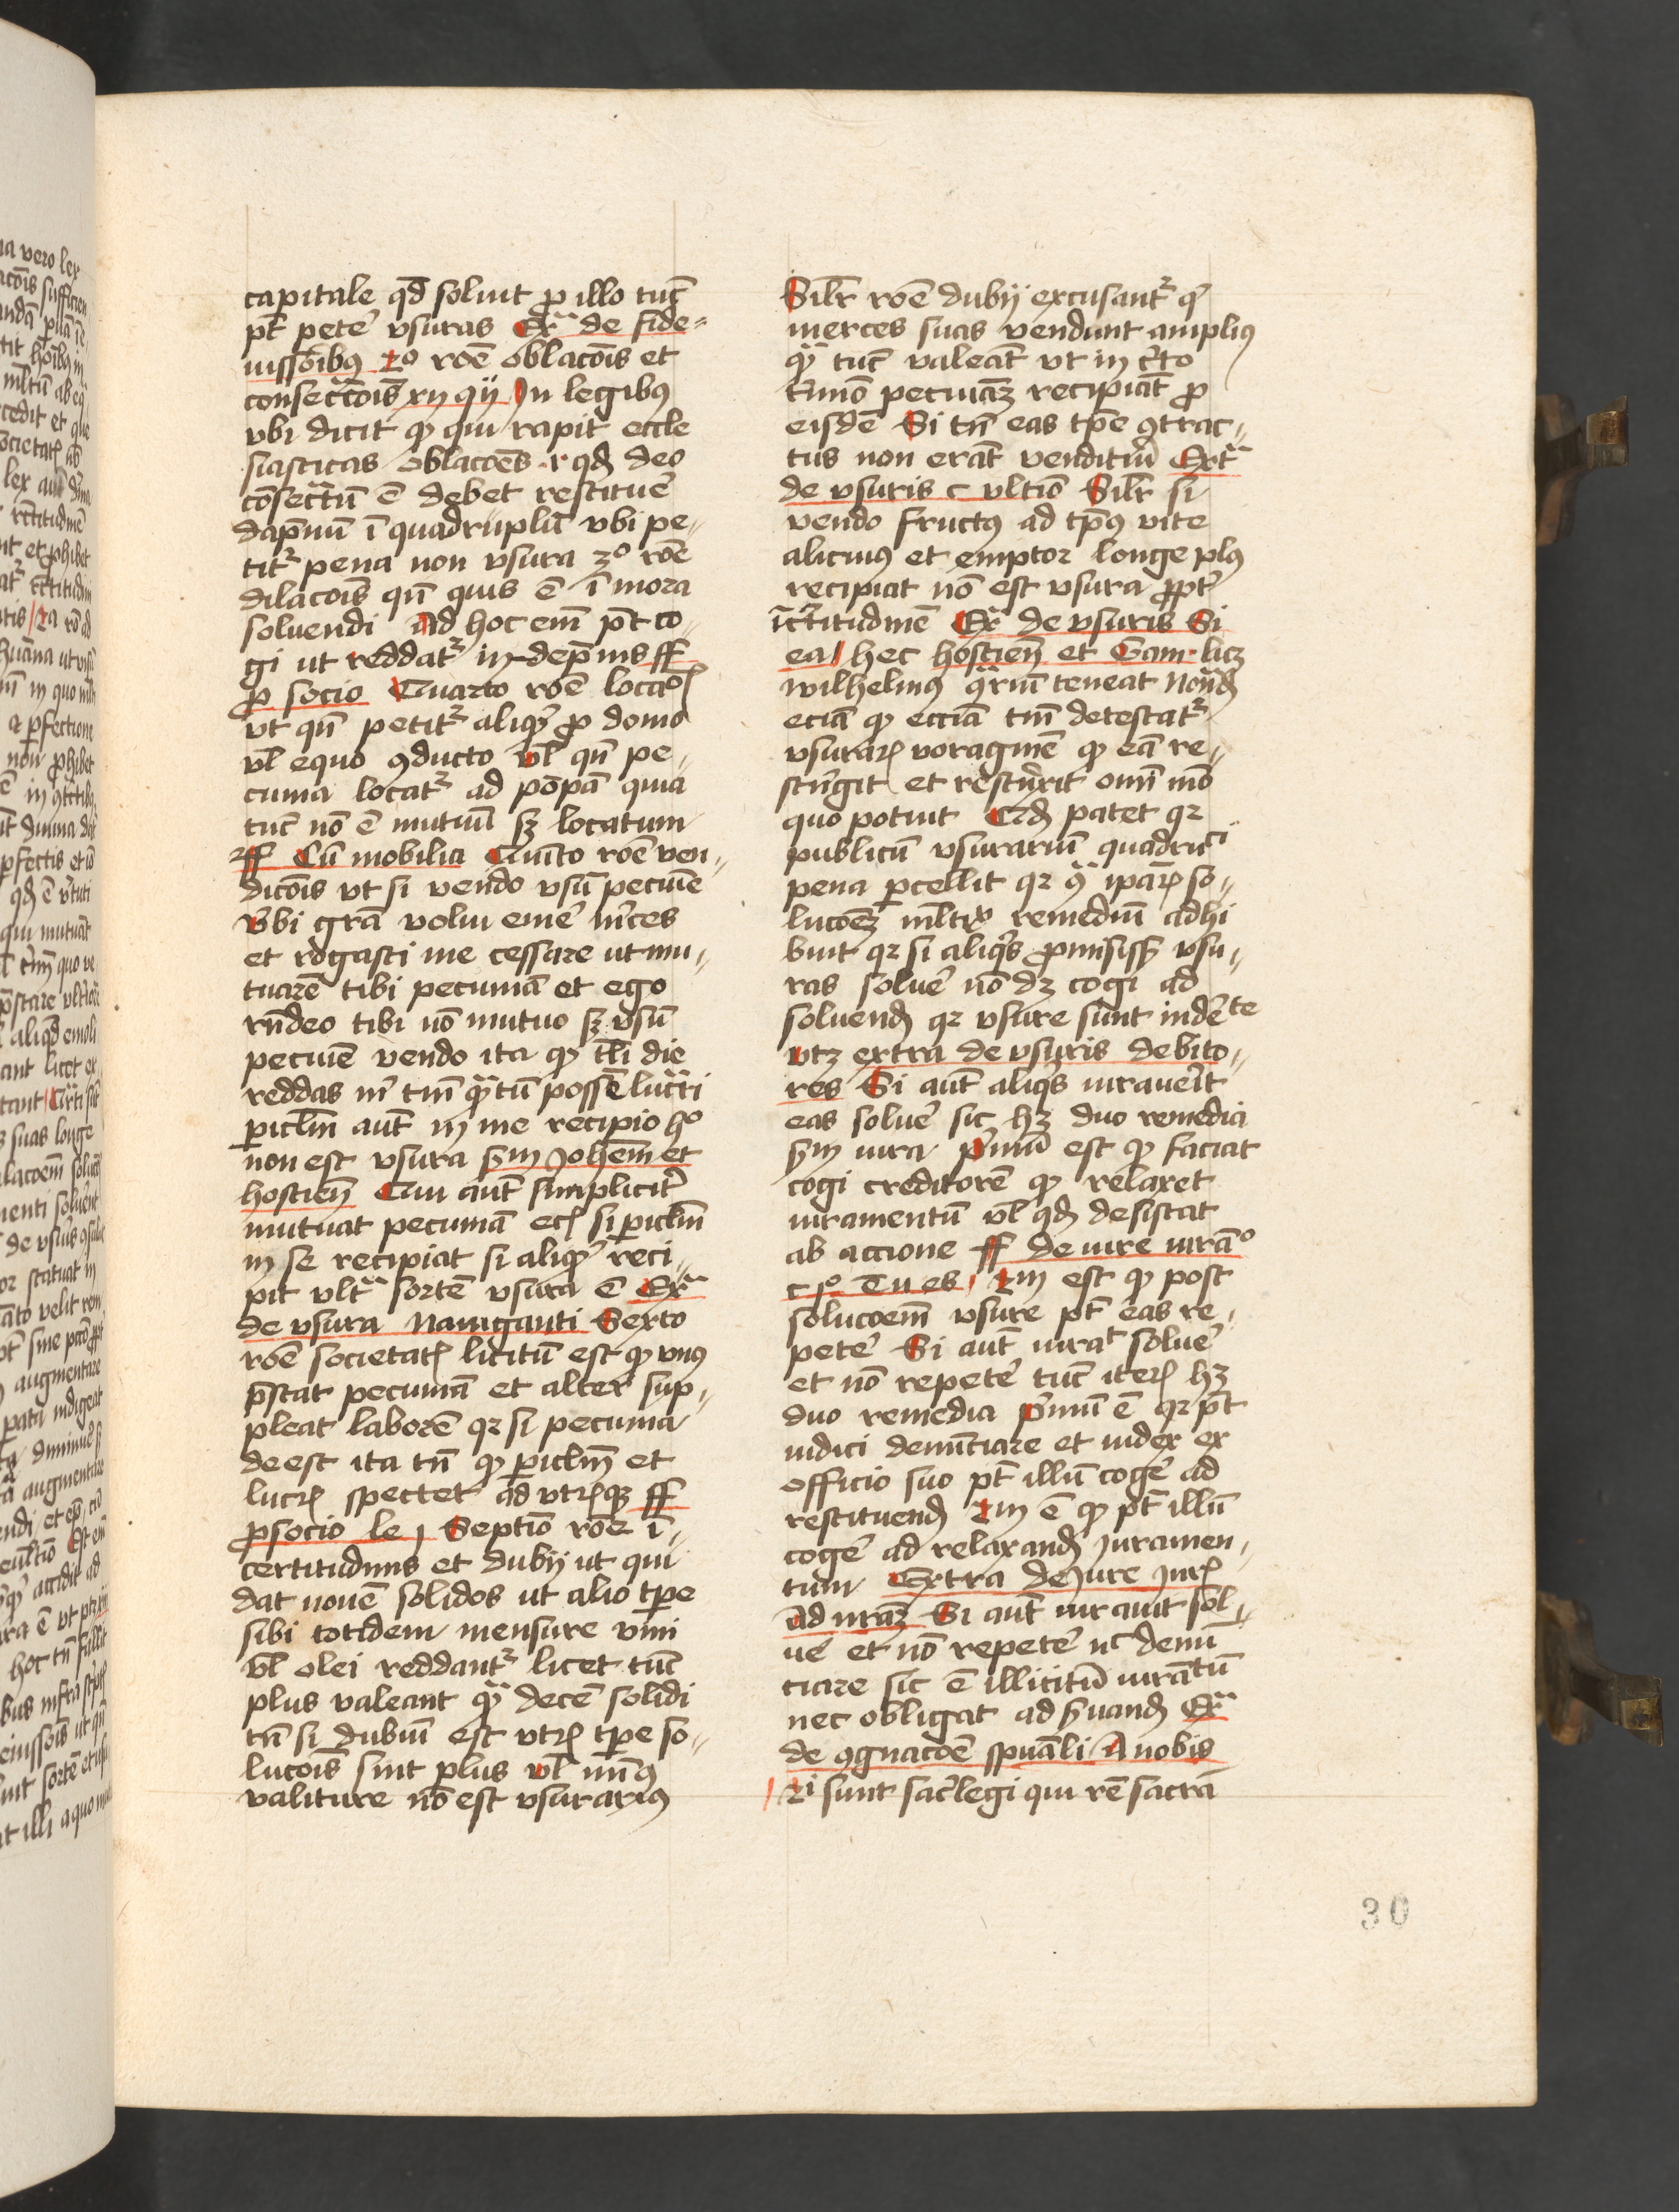 capitale qd̄ soluit ꝓ illo tūc
pt̄ petē vsuras Exᵃ de fide=
iussoribꝰ 2o roē oblacōis et
consecrācōis xij qij In legibꝰ
vbi dicit ꝙ qui rapit eccle
siasticas oblacoēs r qd̄ deo
cōsecᵃtū ē debet restituē
dap̄nū ī quadruplū vbi pe„
titᷣ pena non vsura 3o roē
dilacōis qn̄ quis ē ī mora
soluendi Ad hoc em̄ pt̄ co„
gi ut reddatᷣ in dep̄nis ff
ꝓ socio Quarto roē locacōꝭ
vt qn̄ petitᷣ aliqͥd ꝓ domo
vl̄ equo ꝯducto vl̄ qn̄ pe„
cunia locatᷣ ad pōpā quia
tūc nō ē mutuū sꝫ locatum
ff Cū mobilia Quīto roē ven„
dicōis vt si vendo vsū pecuīe
vbi gr̄a volui emē m̄ces
et rogasti me cessare ut mu„
tuarē tibi pecuniā et ego
rn̄deo tibi nō mutuo sꝫ vsū
pecuīe vendo ita ꝙ tl̄i die
reddas m̄ tm̄ qᵃtū possē lucᵃri
ꝑiclm̄ aut̄ in me recipio hº
non est vsura sm̄ Johem̄ et
hostien̄ Qui aut̄ simplicitᷣ
mutuat pecuniā ecꝭ si ꝑiclm̄
in se recipiat si aliqͥd reci„
pit vltᵃ sortē vsura ē Exᵃ
de vsura Nauiganti Sexto
roē societatꝭ licitū est ꝙ vnꝰ
p̄stat pecuniā et alter sup„
pleat laborē qꝛ si pecunia
deest ita tn̄ ꝙ ꝑiclm̄ et
lucrꝭ spectet ad vtrꝭqꝫ ff
ꝓ socio le j Septīo roē ī„
certitudinis et dubij ut qui
dat nouē solidos ut alio tꝑe
sibi totidem mensure vini
vl̄ olei reddantᷣ licet tūc
plus valeant qᵃ decē solidi
tn̄ si dubiū est vtrꝭ tꝑe so„
lucōis sint plus vl̄ minꝰ
valiture nō est vsurariꝰ
Silr̄ roē dubij excusantᷣ qͥ
merces suas vendunt ampliꝰ
qᵃ tūc valeāt vt in c̄to
t̄mīo pecuniāꝫ recipiāt ꝓ
eisdē Si tn̄ eas tꝑe ꝯtrac„
tus non erāt venditurī Extᵃ
de vsuris c vltīo Silr̄ si
vendo fructꝰ ad tp̄ꝰ vite
alicuiꝰ et emptor longe plꝰ
recipiat nō est vsura ꝓptᷣ
īc̄titudinē Exᵃ de vsuris Si
ea hec hostien̄ et Gam. licꝫ
wilhelmꝰ ꝯᵃriū teneat Nōnd̄
eciā ꝙ eccīā tm̄ detestatᷣ
vsurarꝭ voraginē ꝙ eā re„
strīgit et restrīxit omī mō
quo potuit Qd̄ patet qꝛ
publicū vsurariū quadruci
pena ꝑcellit qꝛ ꝯᵃ ip̄arꝭ so„
lucoēꝫ ml̄tꝭ remediū adhi
buit qꝛ si aliqͥs ꝓmisissꝫ vsu„
ras soluē nō dꝫ cogi ad
soluend̄ qꝛ vsure sunt indēte
vtꝫ extra de vsuris debito„
res Si aut̄ aliqͥs iurauerīt
eas soluē sic hꝫ duo remedia
sm̄ iura pͥmū est ꝙ faciat
cogi creditorē ꝙ relaxet
iuramentū vl̄ qd̄ desistat
ab accione ff de iure iurāº
c pº Tu es 2m est ꝙ post
solucoem̄ vsure pt̄ eas re„
petē Si aut̄ iurat soluē
et nō repetē tūc iterꝭ hꝫ
duo remedia pͥmū ē qꝛ pt̄
iudici denūtiare et iudex ex
officio suo pt̄ illū cogē ad
restituend̄ 2m ē ꝙ pt̄ illū
cogē ad relaxand̄ iuramen„
tum Extra de Jure Jurꝭ
ad nrāꝫ Si aut̄ iurauit sol„
uē et nō repetē nc̄ denū
tiare sic ē illicitū iurātū
nec obligat ad s̄uand̄ Exᵃ
de ꝯgnacōē spūali A nobis
Ri sunt sacͥlegi qui rē sacrā
30